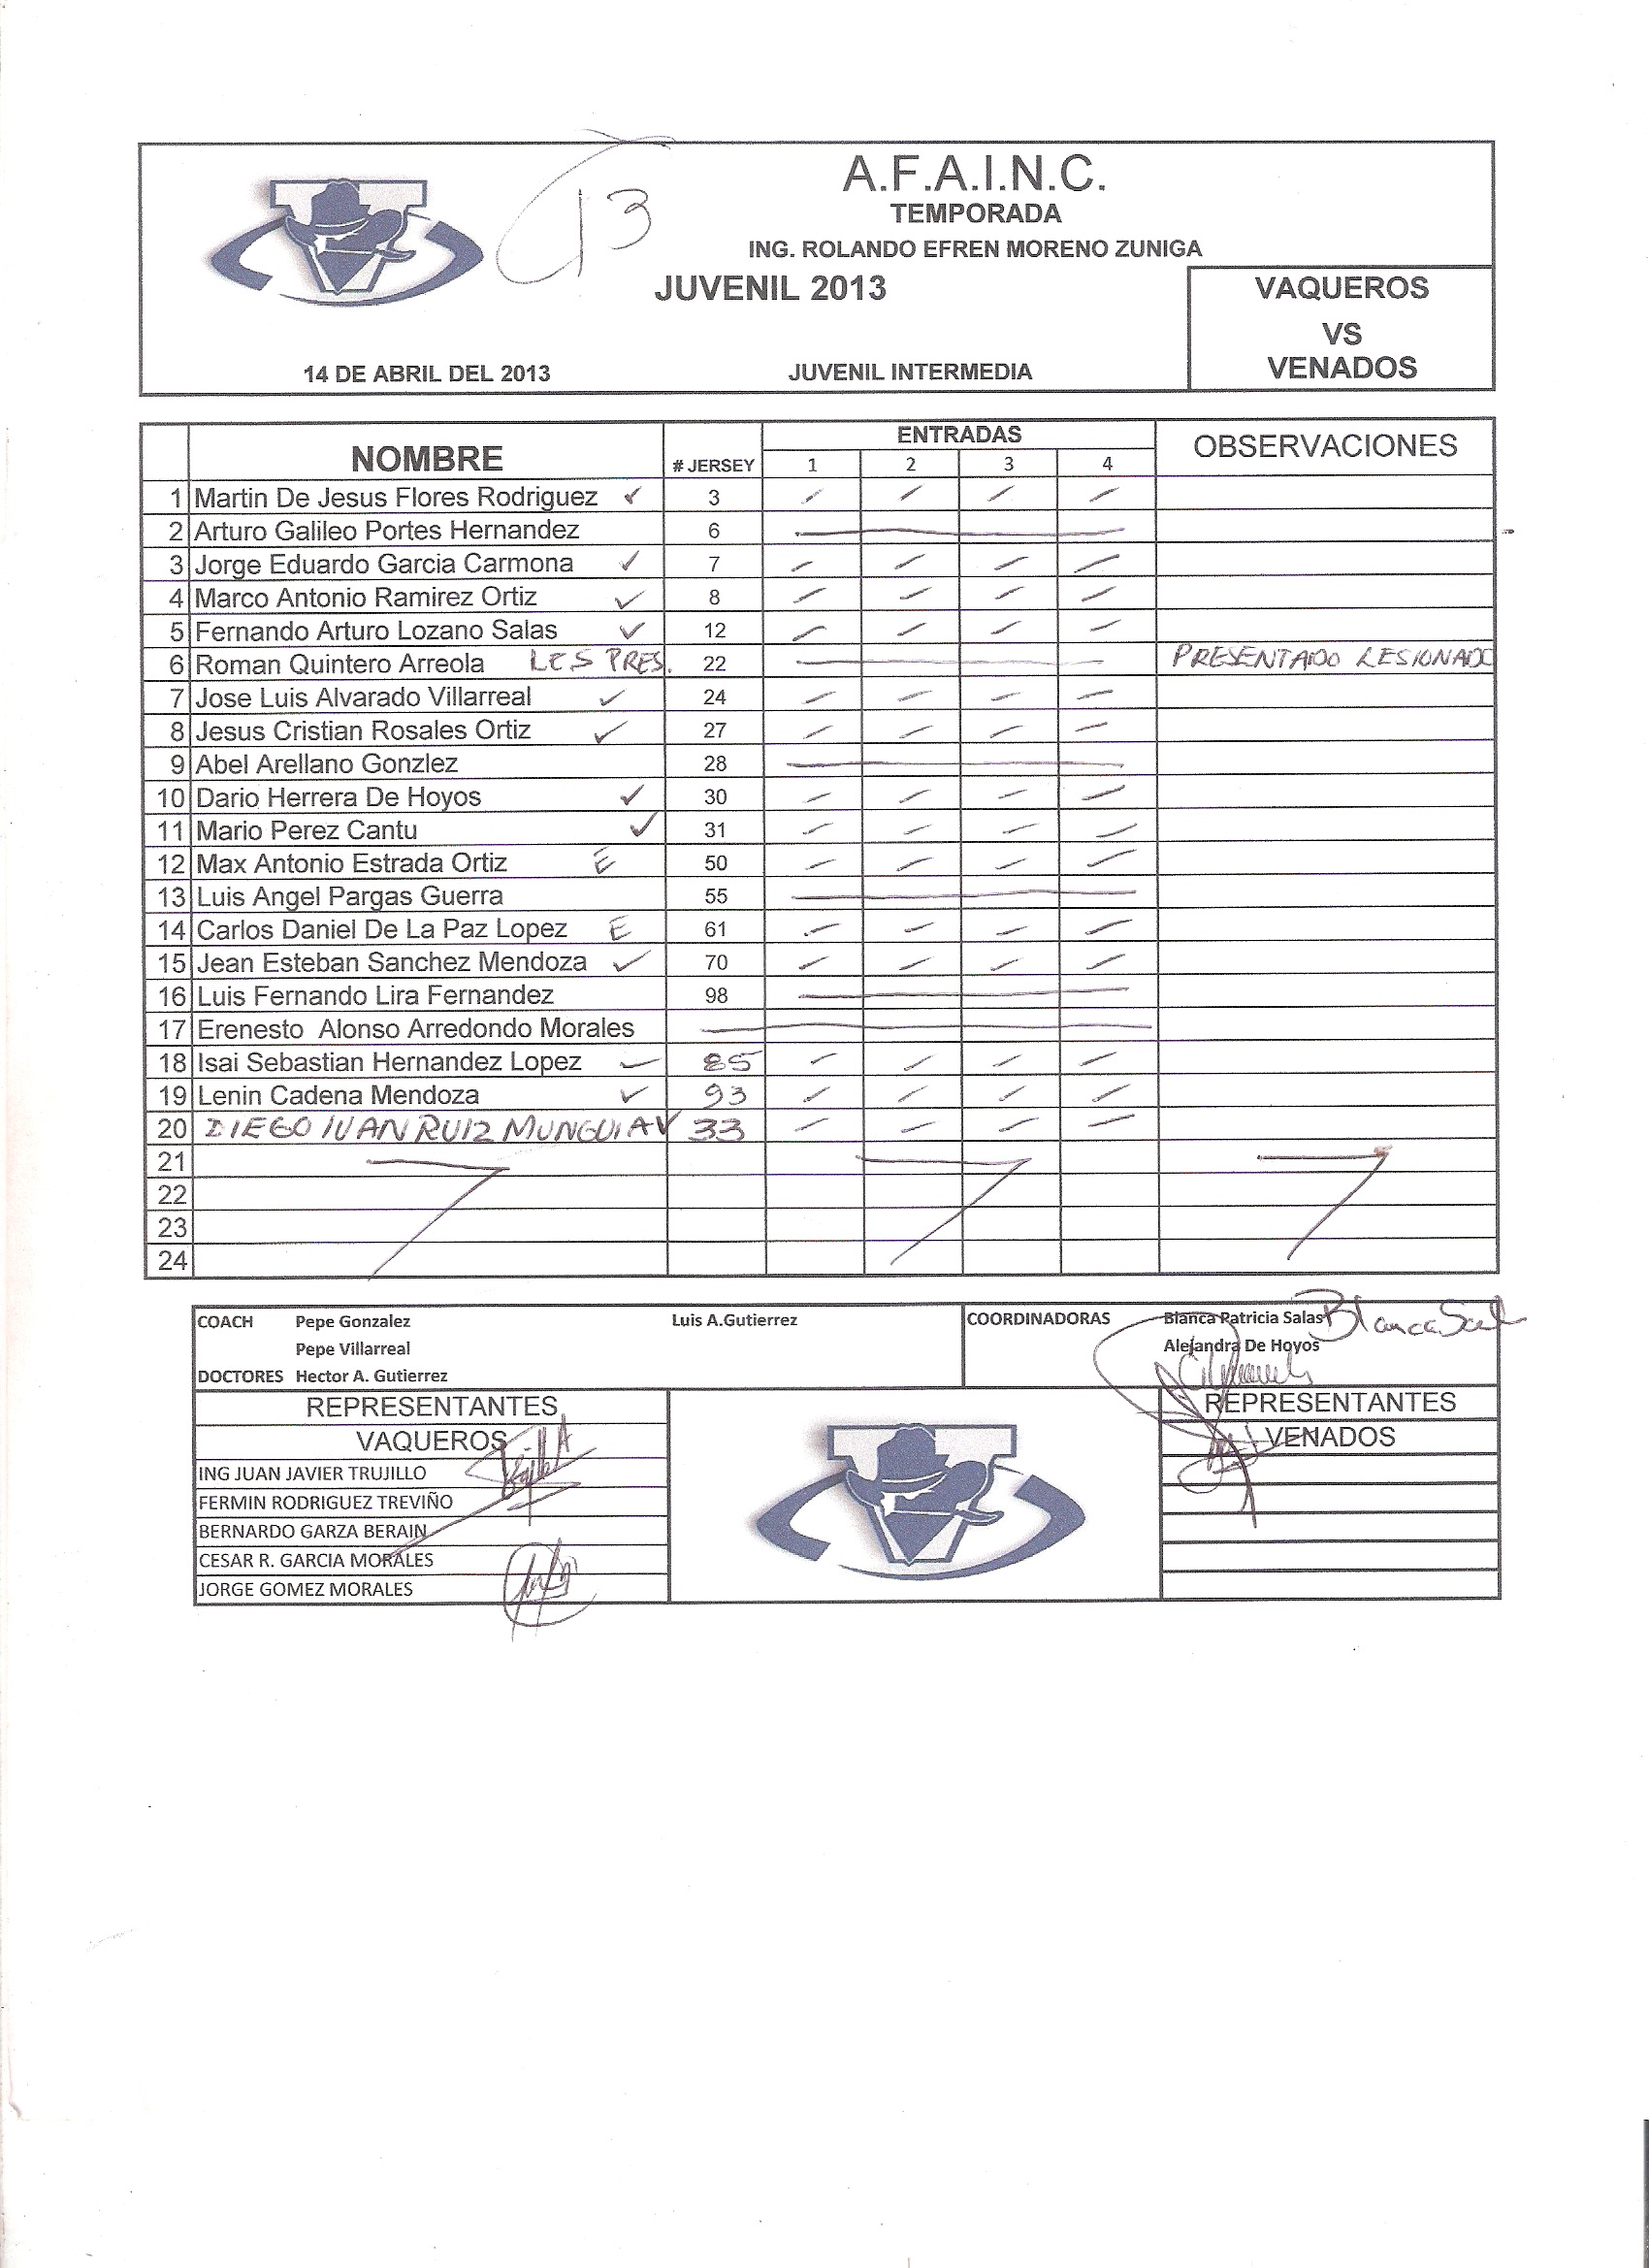 A.F.A.I.N.C.
TEMPORADA
13
ING. ROLANDO EFREN MORENO ZUNIGA
JUVENIL 2013
VAQUEROS
VS
VENADOS
14 DE ABRIL DEL 2013 JUVENIL INTERMEDIA
NOMBRE # JERSEY ENTRADAS OBSERVACIONES
1 2 3 4
1 Martin De Jesus Flores Rodriguez ✓ 3
2 Arturo Galileo Portes Hernandez 6
3 Jorge Eduardo Garcia Carmona ✓ 7
4 Marco Antonio Ramirez Ortiz ✓ 8
5 Fernando Arturo Lozano Salas ✓ 12
6 Roman Quintero Arreola LES PRES. 22 PRESENTADO LESIONADO
7 Jose Luis Alvarado Villarreal ✓ 24
8 Jesus Cristian Rosales Ortiz ✓ 27
9 Abel Arellano Gonzlez 28
10 Dario Herrera De Hoyos ✓ 30
11 Mario Perez Cantu ✓ 31
12 Max Antonio Estrada Ortiz E 50
13 Luis Angel Pargas Guerra 55
14 Carlos Daniel De La Paz Lopez E 61
15 Jean Esteban Sanchez Mendoza ✓ 70
16 Luis Fernando Lira Fernandez 98
17 Erenesto Alonso Arredondo Morales
18 Isai Sebastian Hernandez Lopez ✓ 85
19 Lenin Cadena Mendoza ✓ 93
20 DIEGO IVAN RUIZ MUNGUIA ✓ 33
21
22
23
24
COACH Pepe Gonzalez Luis A.Gutierrez COORDINADORAS Blanca Patricia Salas Blanca
Pepe Villarreal Alejandra De Hoyos
DOCTORES Hector A. Gutierrez
REPRESENTANTES REPRESENTANTES
VAQUEROS VENADOS
ING JUAN JAVIER TRUJILLO
FERMIN RODRIGUEZ TREVIÑO
BERNARDO GARZA BERAIN
CESAR R. GARCIA MORALES
JORGE GOMEZ MORALES